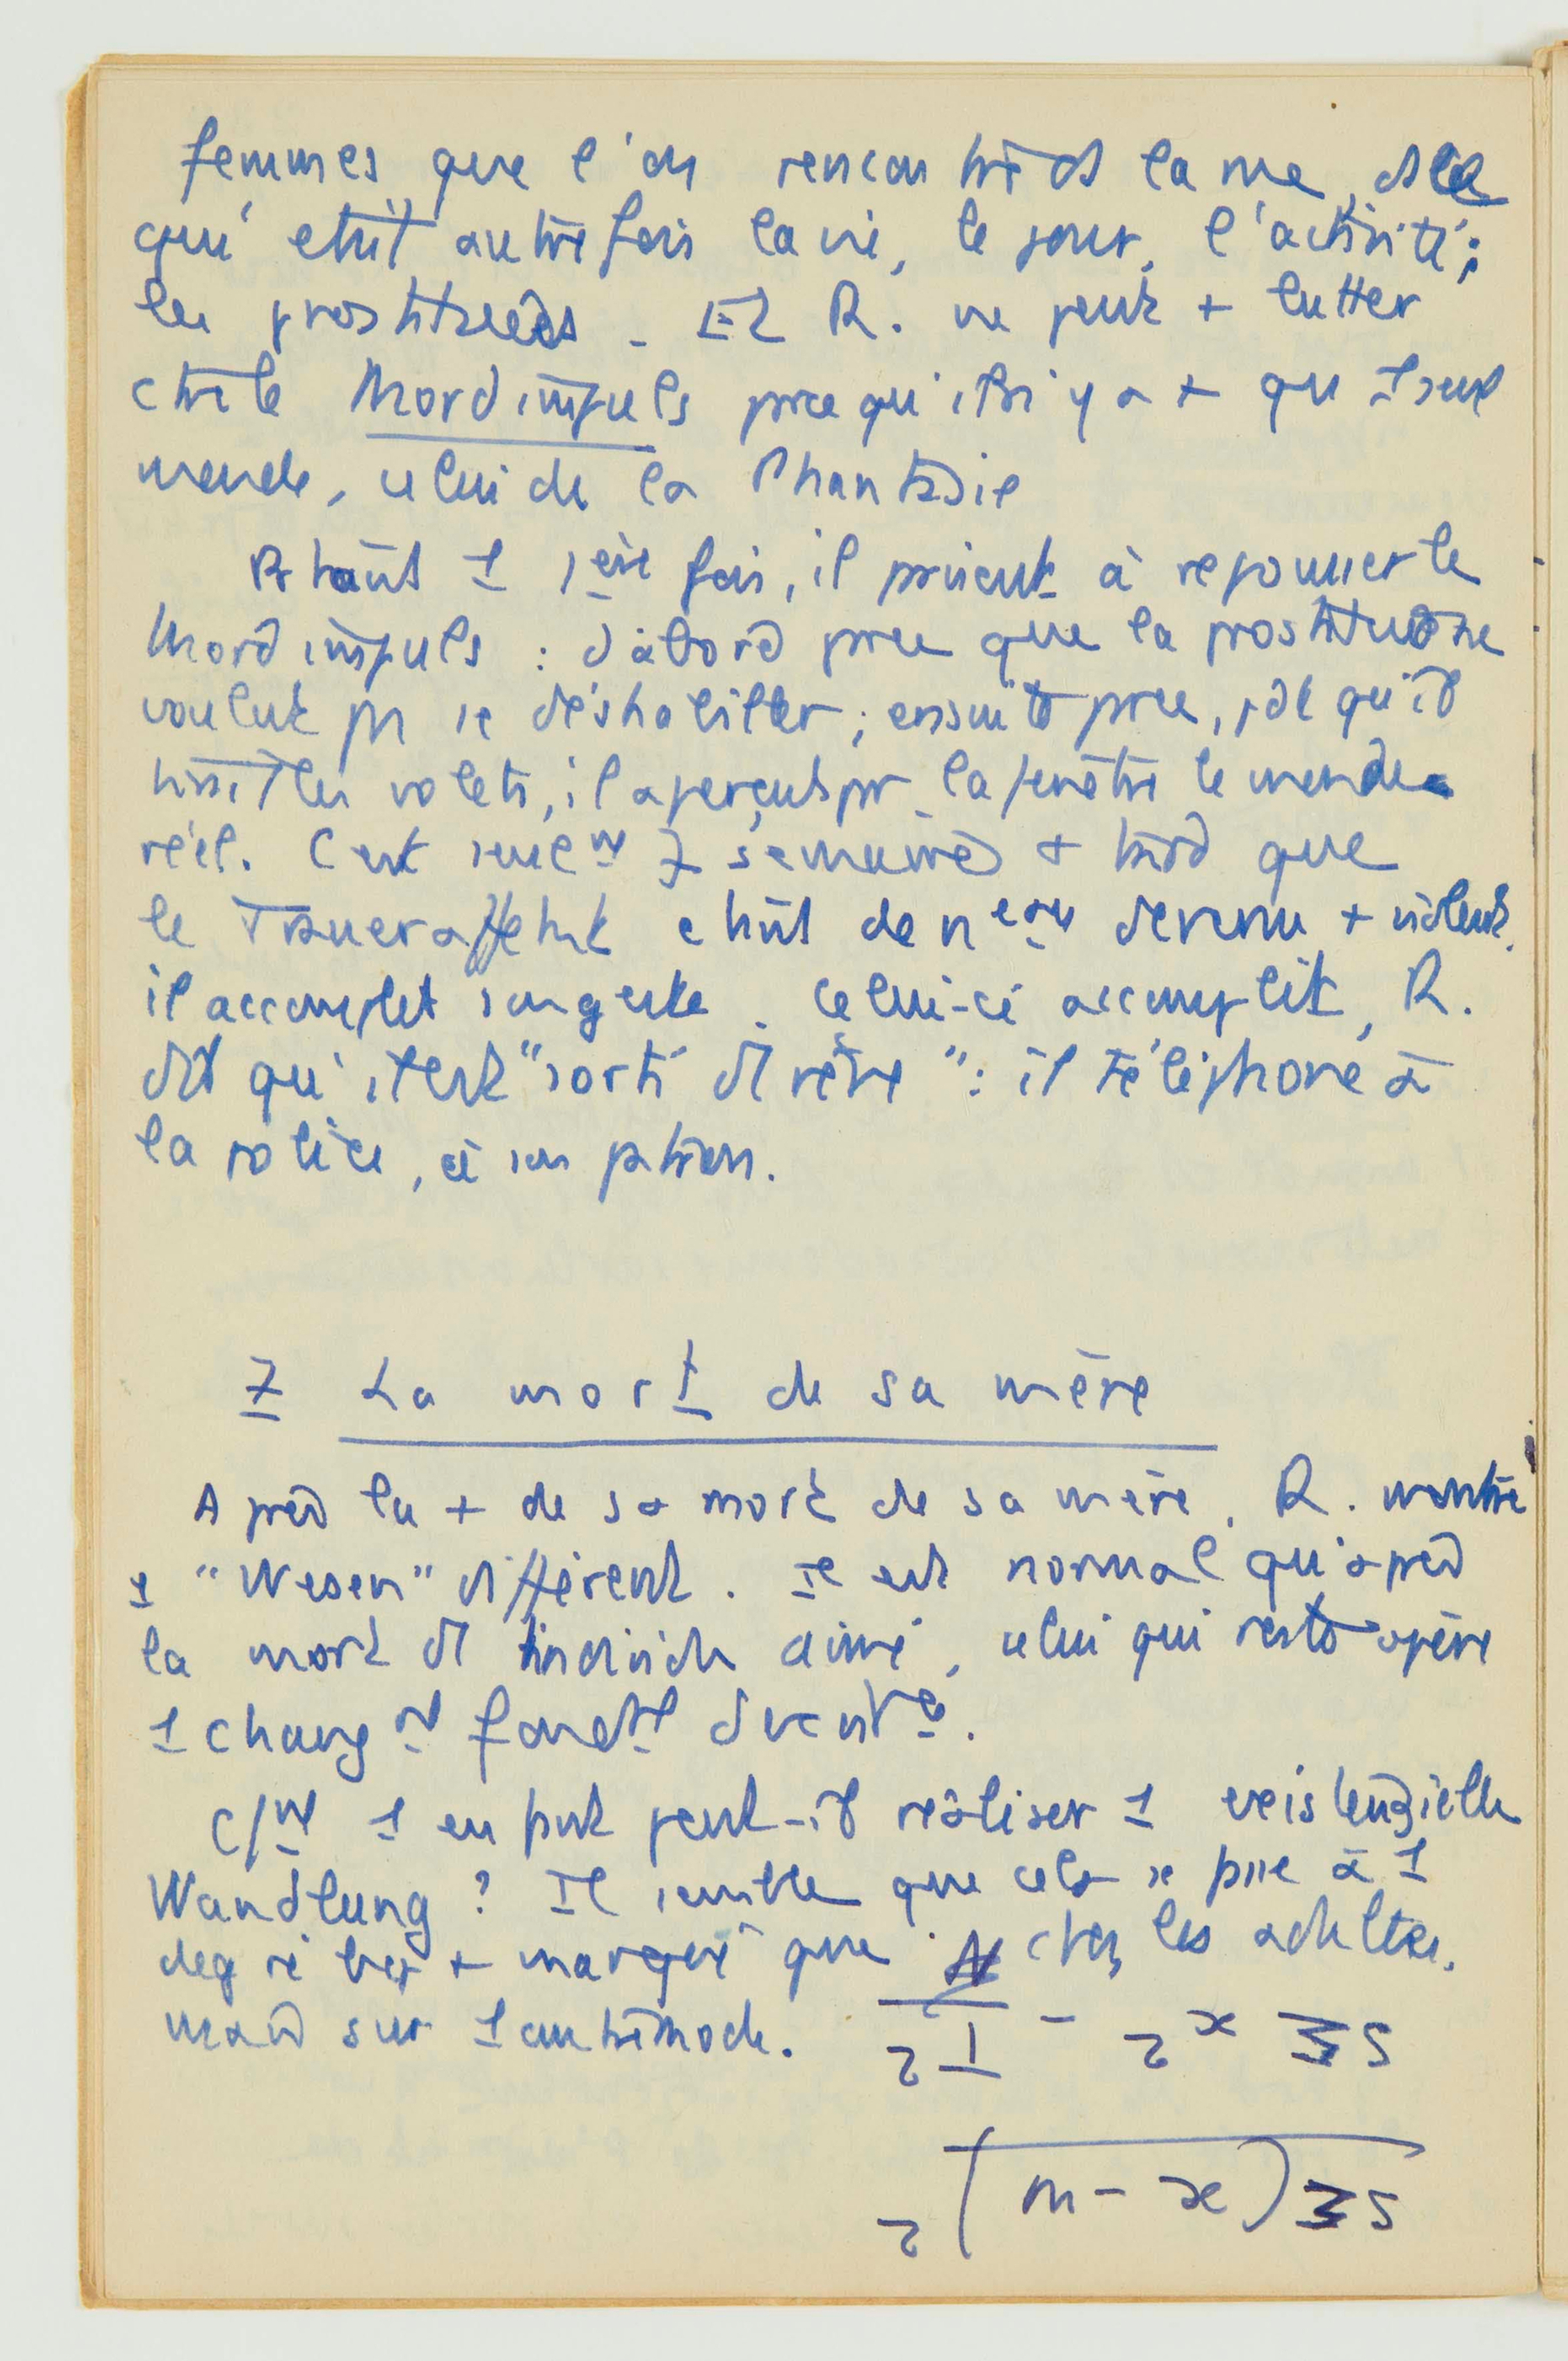 femmes que l'on rencontre ds la rue, ds ce
qui était autrefois la vie, le jour, l'activité ;
les prostituées. Et R. ne peut + lutter
ctre le Mordimpuls parce qu'il n'y a + qu'1 seul
monde, celui de la Phantasie
Prtant 1 1ère fois, il parvient à repousser le
Mordimpuls : d'abord parce que la prostituée ne
voulut pas se déshabiller ; ensuite parce, pdt qu'il
tirait les volets, il aperçut par la fenêtre le monde
réel. C'est seulemt 7 semaines + tard que
le Traueraffekt était de nveau devenu + violent,
il accomplit son geste. Celui-ci accomplit, R.
dit qu'il est "sorti d'1 rêve" : il téléphone à
la police, à son patron.
7 La mort de sa mère
Après la + de sa mort de sa mère, R. montre
1 "Wesen" différent. Il est normal qu'après
la mort d'1 individu aimé, celui qui reste opère
1 changmt
C/mt 1 enfant peut-il réaliser 1 existenzielle
Wandlung ? Il semble que cela se passe à 1
degré bcp + marqué que chez les adultes,
mais sur 1 autre mode.
S Σ x² - T²
N
S Σ (x - m)²